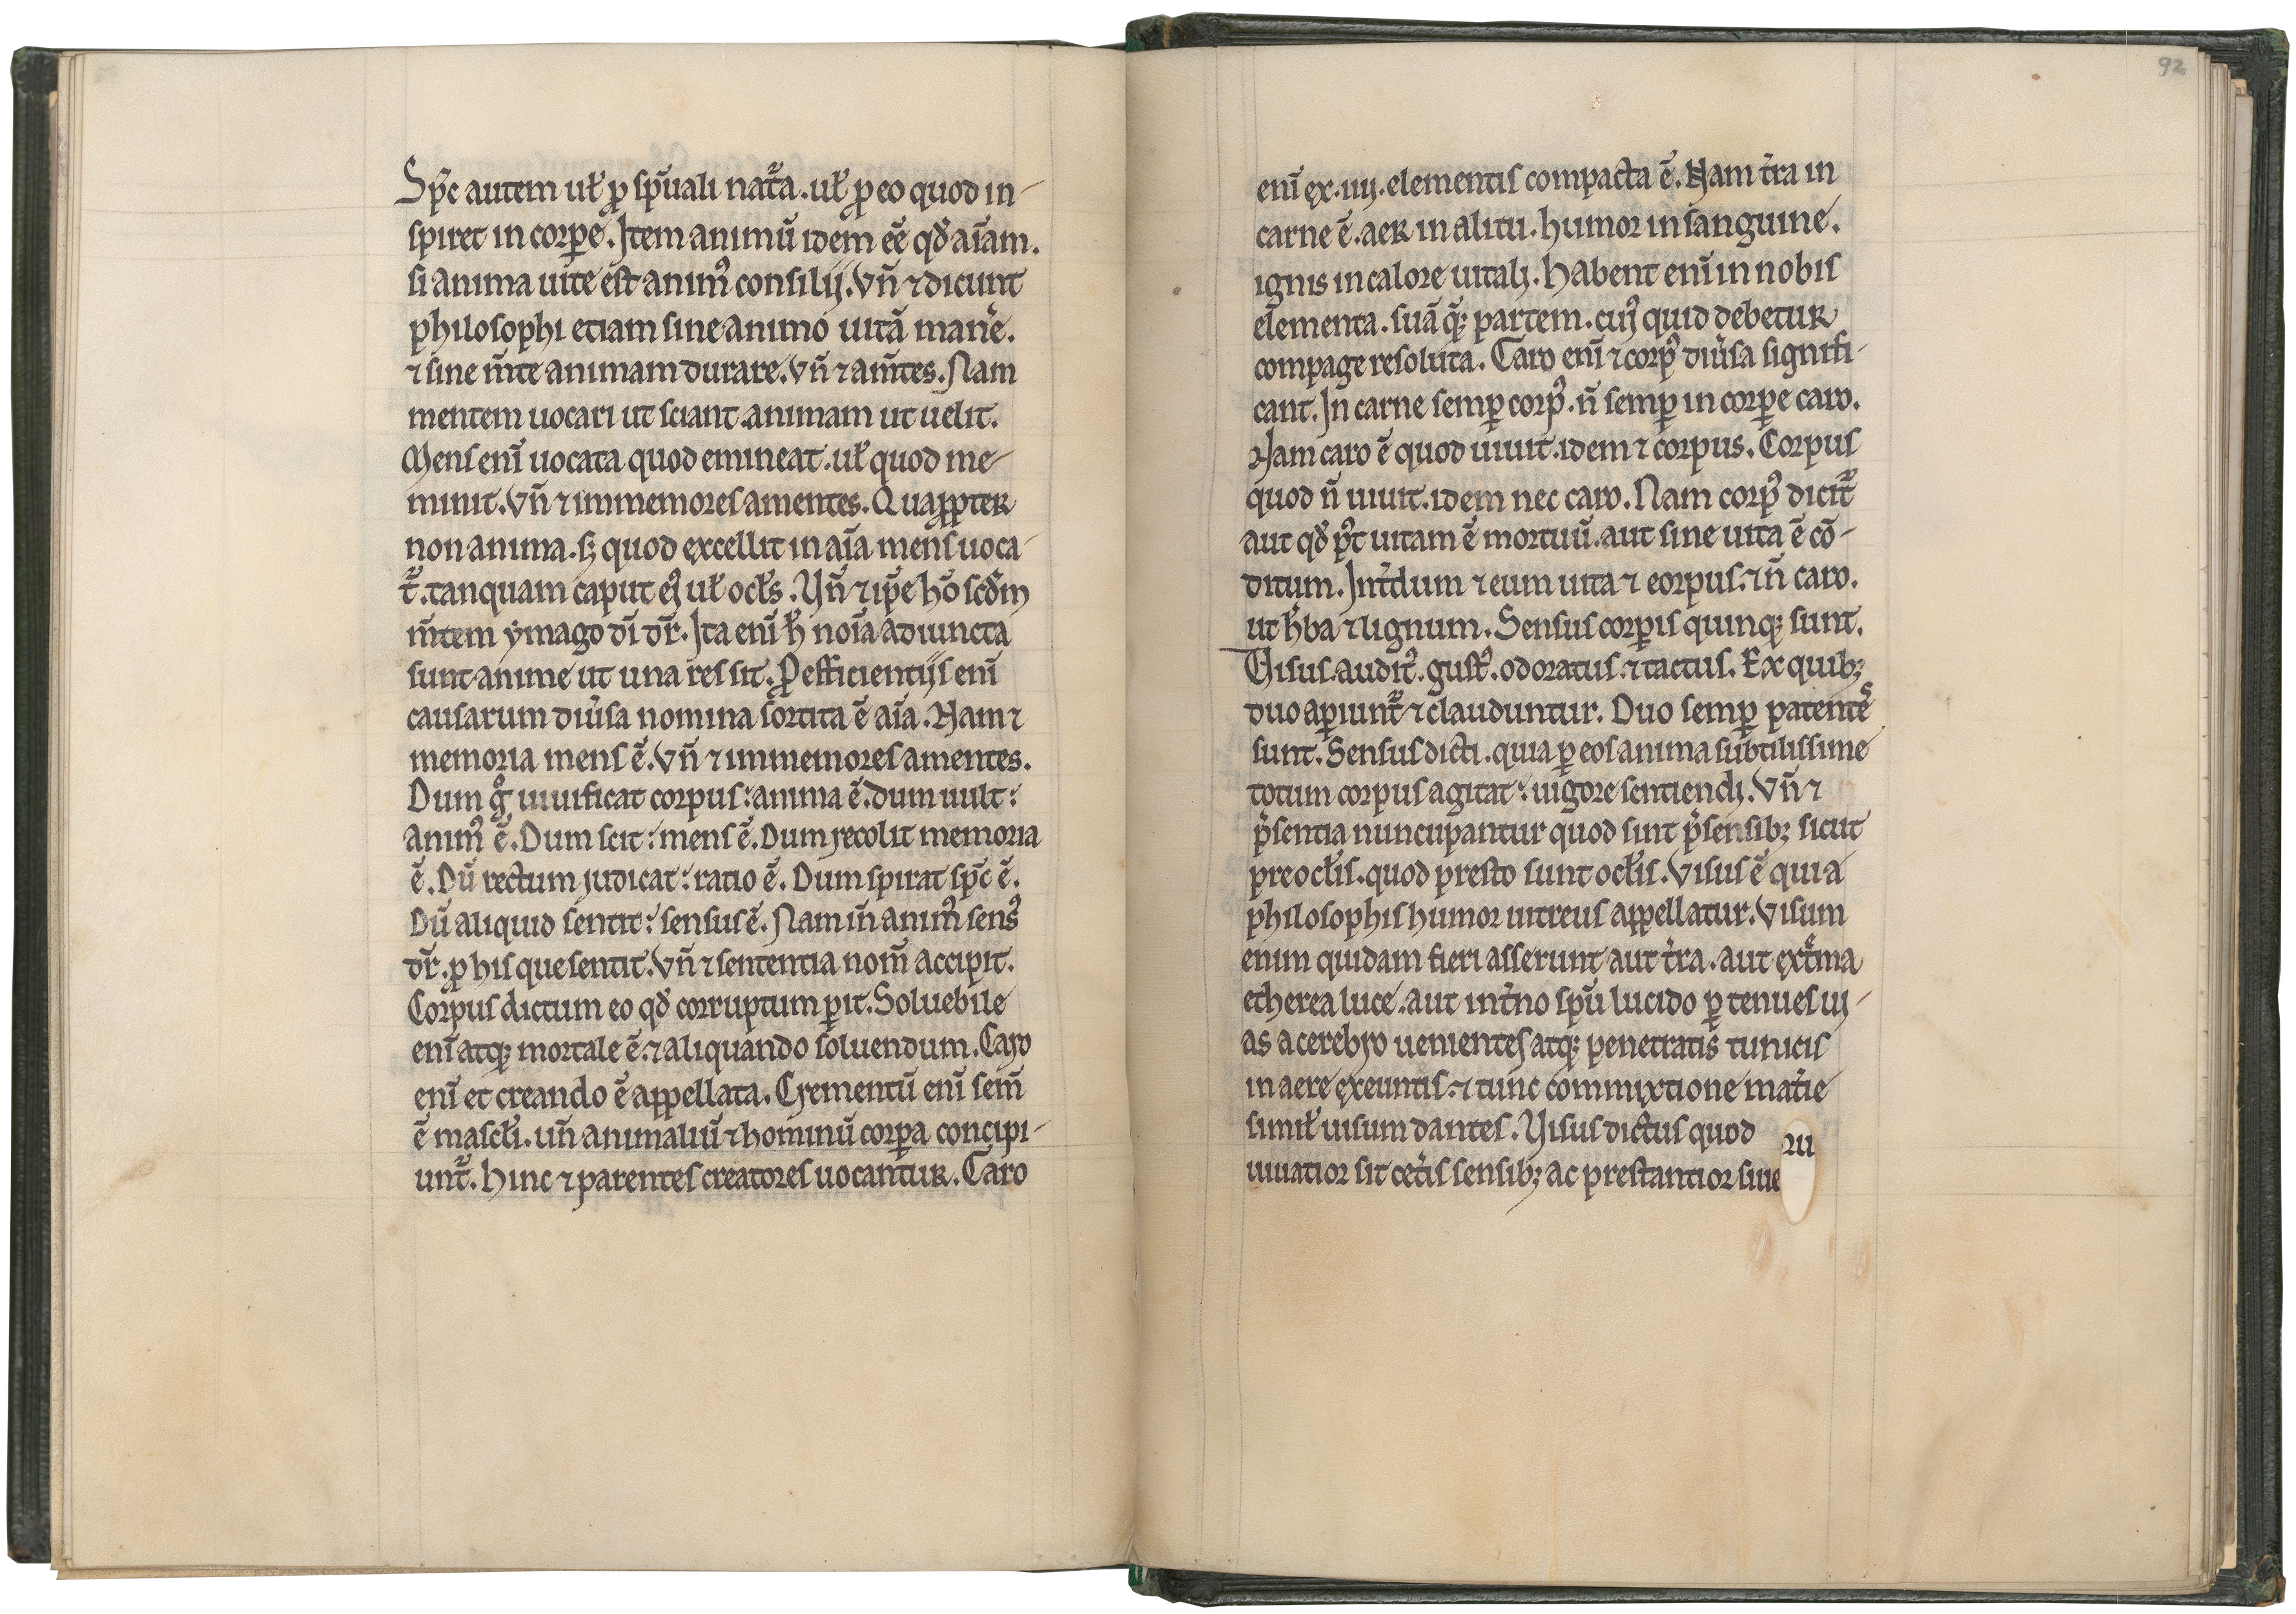 Sp̄c autem uł ꝓ sp̄uali nat̃a . uł ꝓ eo quod in-
spiret in corꝑe . Item animũ idem eē qđ aīam .
si anima uite est animꝰ consilij . Vñ ⁊ dicunt
philosophi etiam sine animo uitã man̄e .
⁊ sine m̄te animam durare . Vñ ⁊ am̄tes . Nam
mentem uocari ut sciant . animam ut uelit .
Mens enī uocata quod emineat . uł quod me-
minit . Vñ ⁊ immemores amentes . Quaꝓpter
non anima . sꝫ quod excellit in aīa mens uoca-
t᷑ . tanquam caput eiꝰ uł ocłs . Vñ ⁊ ip̄e hō scđm
m̄tem ymago dī dr̄ . Ita enī h̄ noīa adiuncta
sunt anime ut una res sit . ꝓ efficientijs enī
causarum diũsa nomina sortita ē aīa . Nam ⁊
memoria mens ē . Vñ ⁊ immemores amentes .
Dum gͦ uiuificat corpus : anima ē . dum uult :
animꝰ ē . Dum scit : mens ē . Dum recolit memoria
ē . Dũ rectum judicat : ratio ē . Dum spirat sp̄c ē .
Dũ aliquid sentit : sensus ē . Nam iñ animꝰ sensꝰ
dr̄ . ꝓ his que sentit . Vñ ⁊ sententia nom̄ accipit .
Corpus dictum eo qđ corruptum ꝑit . Soluebile
enī atqꝫ mortale ē . ⁊ aliquando soluendum . Caro
enī et creando ē appellata . Crementũ enī sem̄
ē mascłi . uñ animaliũ ⁊ hominũ corꝑa concipi-
unt᷑ . hinc ⁊ parentes creatores uocantur . Caro
92
enī ex . iiij . elementis compacta ē . Nam t̄ra in
carne ē . aer in alitu . humor in sanguine .
ignis in calore uitali . Habent enī in nobis
elementa . suã q̃ꝫ partem . cuiꝰ quid debetur
compage resoluta . Caro enī ⁊ corpꝰ diũsa signifi-
cant . In carne semꝑ corpꝰ . ñ semꝑ in corꝑe caro .
Nam caro ē quod uiuit . idem ⁊ corpus . Corpus
quod ñ uiuit . idem nec caro . Nam corpꝰ dicit᷑
aut qđ pꝰt uitam ē mortuũ . aut sine uita ē cō-
ditum . Int̄dum ⁊ cum uita ⁊ corpus . ⁊ ñ caro .
ut h̄ba ⁊ lignum . Sensus corꝑis quinqꝫ sunt .
Visus . auditꝰ . gustꝰ . odoratus . ⁊ tactus . Ex quibꝫ
duo aꝑiunt᷑ ⁊ clauduntur . Duo semꝑ patentes
sunt . Sensus dicti . quia ꝑ eos anima subtilissime
totum corpus agitat : uigore sentiendi . Vñ ⁊
p̄sentia nuncupantur quod sint p̄ sensibꝫ sicut
pre ocłis . quod presto sunt ocłis . Visus ē quia
philosophis humor uitreus appellatur . Visum
enim quidam fieri asserunt aut t̄ra . aut ext̄ma
etherea luce . aut int̄no sp̄u lucido ꝑ tenues ui-
as a cerebro uenientes atqꝫ penetratis tunicis
in aere exeuntis . ⁊ tunc commixtione mat̄ie
simił uisum dantes . Visus dictus quod
uiuatior sit cet̄is sensibꝫ ac prestantior siue